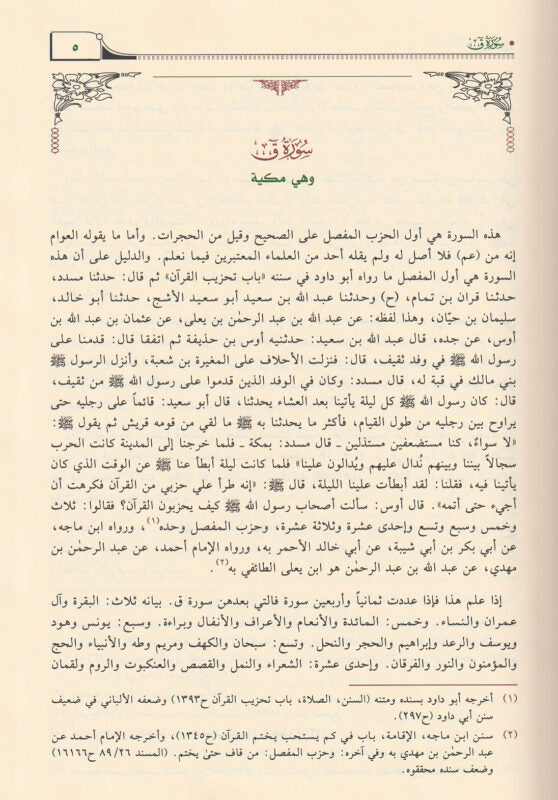 سورة ق
٥
سورة ق
وهي مكية
هذه السورة هي أول الحزب المفصل على الصحيح وقيل من الحجرات. وأما ما يقوله العوام
إنه من (عم) فلا أصل له ولم يقله أحد من العلماء المعتبرين فيما نعلم. والدليل على أن هذه
السورة هي أول المفصل ما رواه أبو داود في سننه «باب تحزيب القرآن» ثم قال: حدثنا مسدد،
حدثنا قران بن تمام، (ح) وحدثنا عبد الله بن سعيد أبو سعيد الأشج، حدثنا أبو خالد،
سليمان بن حيّان، وهذا لفظه: عن عبد الله بن عبد الرحمٰن بن يعلى، عن عثمان بن عبد الله بن
أوس، عن جده، قال عبد الله بن سعيد: حدثنيه أوس بن حذيفة ثم اتفقا قال: قدمنا على
رسول الله ﷺ في وفد ثقيف، قال: فنزلت الأحلاف على المغيرة بن شعبة، وأنزل الرسول ﷺ
بني مالك في قبة له، قال مسدد: وكان في الوفد الذين قدموا على رسول الله ﷺ من ثقيف،
قال: كان رسول الله ﷺ كل ليلة يأتينا بعد العشاء يحدثنا، قال أبو سعيد: قائماً على رجليه حتى
يراوح بين رجليه من طول القيام، فأكثر ما يحدثنا به ﷺ ما لقي من قومه قريش ثم يقول ﷺ:
«لا سواءً، كنا مستضعفين مستذلين ـ قال مسدد: بمكة ـ فلما خرجنا إلى المدينة كانت الحرب
سجالاً بيننا وبينهم نُدال عليهم ويُدالون علينا» فلما كانت ليلة أبطأ عنا ﷺ عن الوقت الذي كان
يأتينا فيه، فقلنا: لقد أبطأت علينا الليلة، قال ﷺ: «إنه طرأ علي حزبي من القرآن فكرهت أن
أجيء حتى أتمه». قال أوس: سألت أصحاب رسول الله ﷺ كيف يحزبون القرآن؟ فقالوا: ثلاث
وخمس وسبع وتسع وإحدى عشرة وثلاثة عشرة، وحزب المفصل وحده(١)، ورواه ابن ماجه،
عن أبي بكر بن أبي شيبة، عن أبي خالد الأحمر به، ورواه الإمام أحمد، عن عبد الرحمٰن بن
مهدي، عن عبد الله بن عبد الرحمٰن هو ابن يعلى الطائفي به(٢).
إذا علم هذا فإذا عددت ثمانياً وأربعين سورة فالتي بعدهن سورة ق. بيانه ثلاث: البقرة وآل
عمران والنساء. وخمس: المائدة والأنعام والأعراف والأنفال وبراءة. وسبع: يونس وهود
ويوسف والرعد وإبراهيم والحجر والنحل. وتسع: سبحان والكهف ومريم وطه والأنبياء والحج
والمؤمنون والنور والفرقان. وإحدى عشرة: الشعراء والنمل والقصص والعنكبوت والروم ولقمان
(١) أخرجه أبو داود بسنده ومتنه (السنن، الصلاة، باب تحزيب القرآن ح١٣٩٣) وضعفه الألباني في ضعيف
سنن أبي داود (ح٢٩٧).
(٢) سنن ابن ماجه، الإقامة، باب في كم يستحب يختم القرآن (ح١٣٤٥)، وأخرجه الإمام أحمد عن
عبد الرحمٰن بن مهدي به وفي آخره: وحزب المفصل: من قاف حتى يختم. (المسند ٨٩/٢٦ ح١٦١٦٦)
وضعف سنده محققوه.